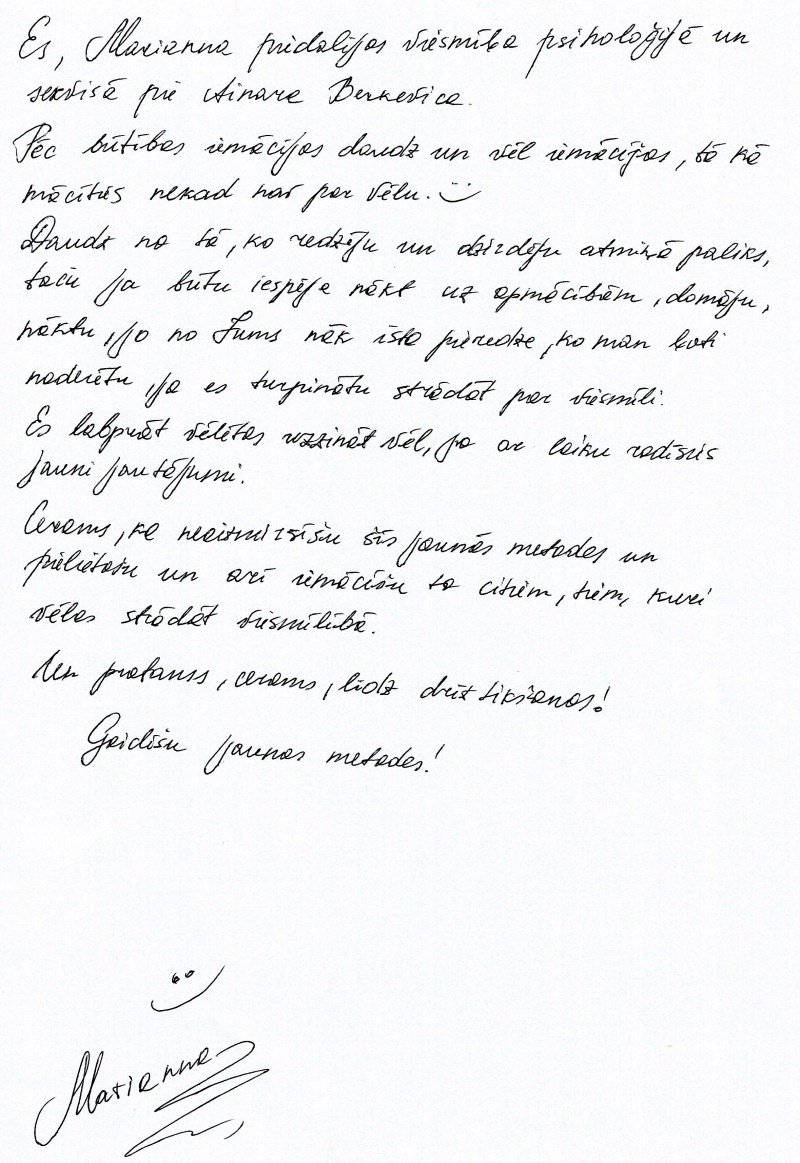 Es, Marianna piedalījos viesmība psiholoģijā un
servisā pie Ainara Berķeviča.
Pēc būtības iemācījos daudz un vēl iemācījos, tā kā
mācīties nekad nav par vēlu. :)
Daudz no tā, ko redzēju un dzirdēju atmiņā paliks,
taču ja būtu iespēja nākt uz apmācībām, domāju,
nāktu, jo no Jums nāk īsta pieredze, ko man ļoti
noderētu, ja es turpinātu strādāt par viesmīli.
Es labprāt vēlētos uzzināt vēl, ja ar laiku radīsies
jauni jautājumi.
Cerams, ka neaizmirsīšu šīs jaunās metodes un
pielietošu un arī iemācīšu to citiem, tiem, kuri
vēlas strādāt viesmīlībā.
Un protams, cerams, līdz drīz tikšanos!
Gaidīšu jaunas metodes!
Marianna